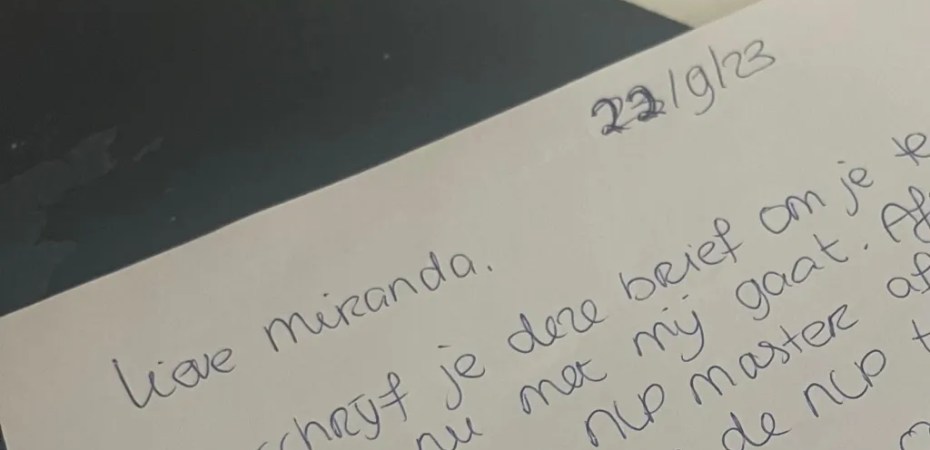 22/9/23
Lieve Miranda.
schrijf je deze brief om je te
nu met mij gaat.
NLP master
de NLP